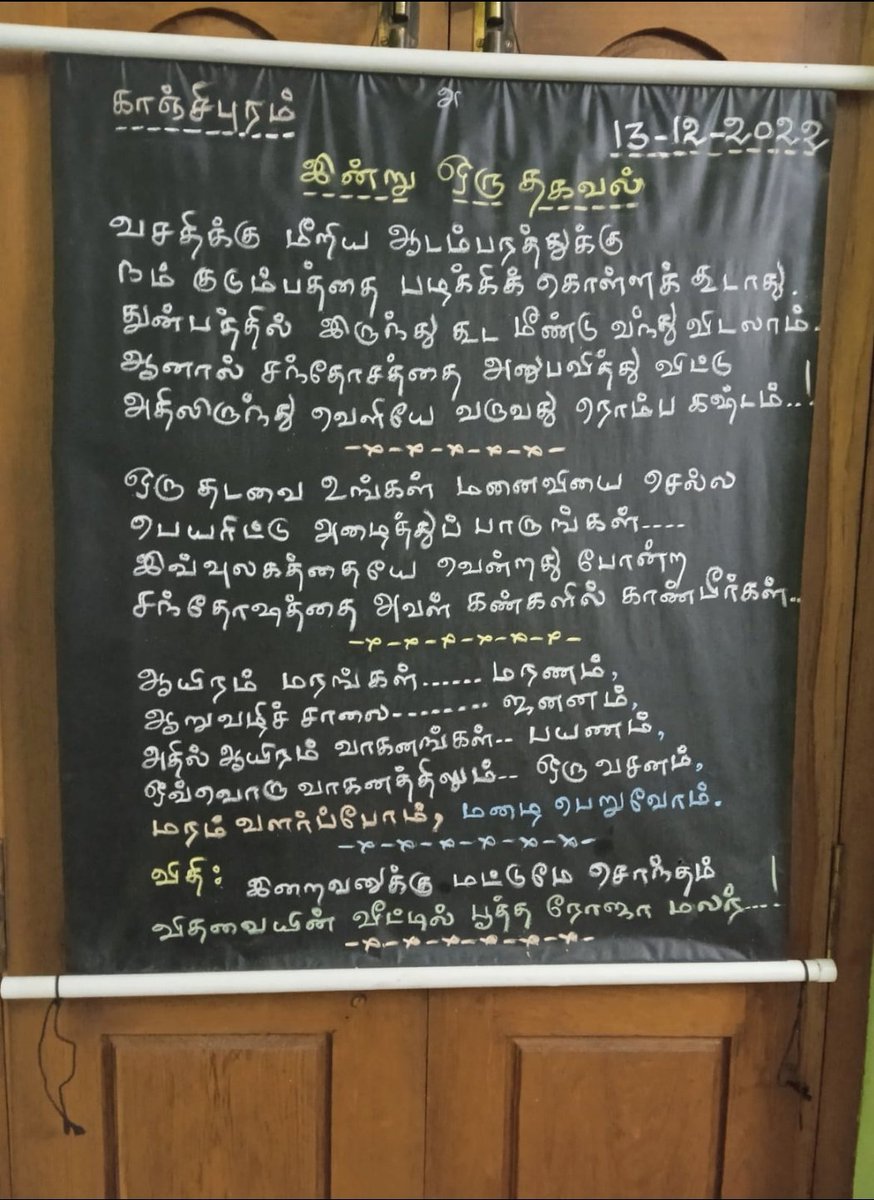 அ
காஞ்சிபுரம்
13-12-2022
இன்று ஒரு தகவல்
வசதிக்கு மீறிய ஆடம்பரத்துக்கு
நம் குடும்பத்தை படிக்கிக் கொள்ளக் கூடாது.
துன்பத்தில் இருந்து கூட மீண்டு வந்து விடலாம்.
ஆனால் சந்தோசத்தை அனுபவித்து விட்டு
அதிலிருந்து வெளியே வருவது ரொம்ப கஷ்டம்..!
-x-x-x-x-x-
ஒரு தடவை உங்கள் மனைவியை செல்ல
பெயரிட்டு அழைத்துப் பாருங்கள்----
இவ்வுலகத்தையே வென்றது போன்ற
சந்தோஷத்தை அவள் கண்களில் காண்பீர்கள்..
-x-x-x-x-x-x-
ஆயிரம் மரங்கள்...... மரணம்,
ஆறுவழிச் சாலை-------- ஜனனம்,
அதில் ஆயிரம் வாகனங்கள்.. பயணம்,
ஒவ்வொரு வாகனத்திலும்.. ஒரு வசனம்,
மரம் வளர்ப்போம், மழை பெறுவோம்.
-x-x-x-x-x-x-
விதி: இறைவனுக்கு மட்டுமே சொந்தம்
விதவையின் வீட்டில் பூத்த ரோஜா மலர்....!
-x-x-x-x-x-x-